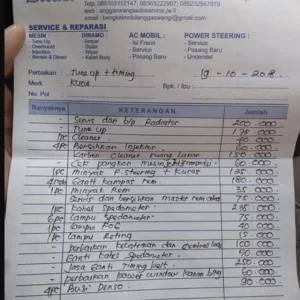 Telp. 085103112147, 085632229907, 085232567979
web : anggaswangiautoservice.jw.lt
email : bengkelmobilanggaswangi@gmail.com
SERVICE & REPARASI
MESIN : DINAMO : AC MOBIL : POWER STEERING :
- Tune Up - Amper - Isi Freon - Service
- Overhoud - Stater - Service - Pasang Baru
- Injection - Wiper - Pasang Baru - Understel
- Bensin & Diesel - Kabel Body
Perbaikan : Tune up + timing 19 - 10 - 2018
Merk : KUDA Bpk. / Ibu :
No. Pol
Banyaknya KETERANGAN Jumlah
- Servis dan b/p Radiator 200.000
- Tune up 175.000
1pc Cleaner 40.000
4pc Bersihkan Injektor 60.000
- Karbon Cleaner ruang bakar 150.000
- Cek pangkon mesin 60.000
1pc Minyak P. Steering + Kuras 125.000
4 Ganti kampas rem 180.000
1pc Minyak Rem 35.000
- Servis dan bersihkan master rem 75.000
1pc Kabel Spedometer 235.000
6pc Lampu Spedometer 75.000
1pc Lampu FOG 40.000
1pc Lampu Reting 15.000
- perbaikan kelistrikan 100.000
- Ganti kabel spedometer 50.000
- Jasa Ganti timing belt 250.000
- perbaikan power window kanan blkg 60.000
4pc Busi Denso 90.000